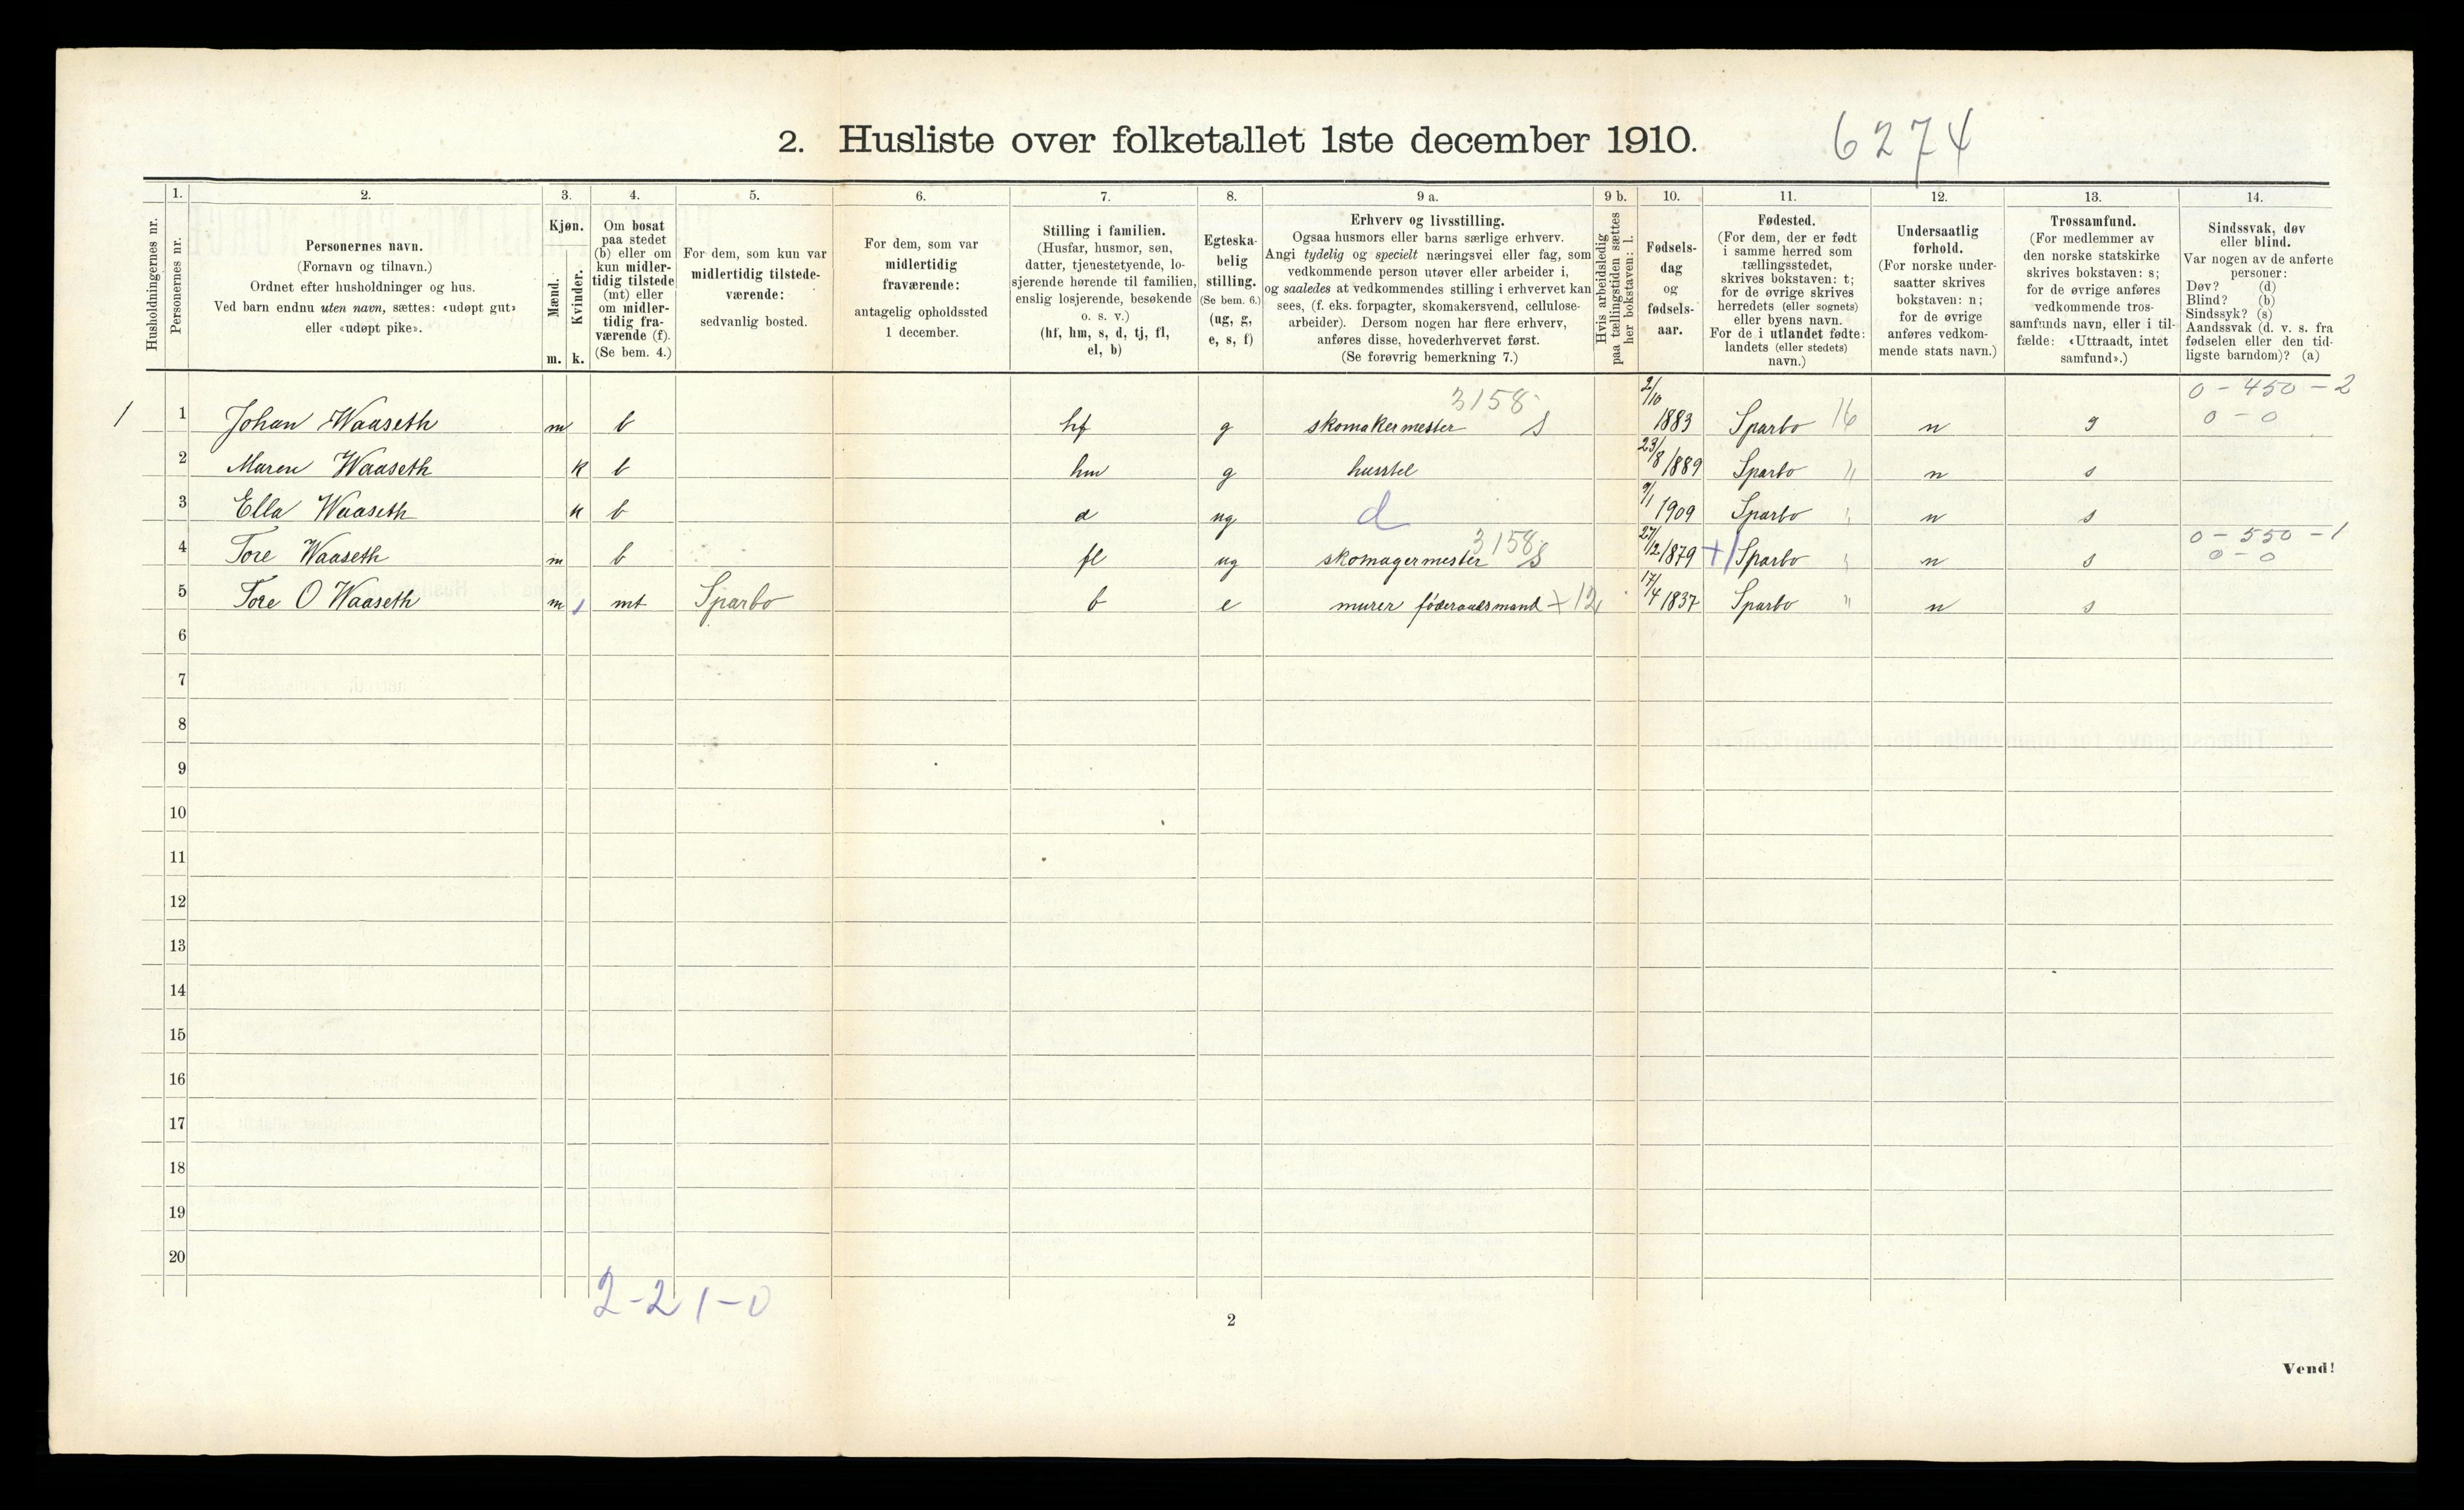 2. Husliste over folketallet 1ste december 1910.
6274
1. 2. 3. 4. 5. 6. 7. 8. 9 a. 9 b. 10. 11. 12. 13. 14.
Husholdningernes nr.
Personernes nr.
Personernes navn.
(Fornavn og tilnavn.)
Ordnet efter husholdninger og hus.
Ved barn endnu uten navn, sættes: «udøpt gut»
eller «udøpt pike».
Kjøn.
Mænd.
Kvinder.
m. k.
Om bosat
paa stedet
(b) eller om
kun midler-
tidig tilstede
(mt) eller
om midler-
tidig fra-
værende (f).
(Se bem. 4.)
For dem, som kun var
midlertidig tilstede-
værende:
sedvanlig bosted.
For dem, som var
midlertidig
fraværende:
antagelig opholdssted
1 december.
Stilling i familien.
(Husfar, husmor, søn,
datter, tjenestetyende, lo-
sjerende hørende til familien,
enslig losjerende, besøkende
o. s. v.)
(hf, hm, s, d, tj, fl,
el, b)
Egteska-
belig
stilling.
(Se bem. 6.)
(ug, g,
e, s, f)
Erhverv og livsstilling.
Ogsaa husmors eller barns særlige erhverv.
Angi tydelig og specielt næringsvei eller fag, som
vedkommende person utøver eller arbeider i,
og saaledes at vedkommendes stilling i erhvervet kan
sees, (f. eks. forpagter, skomakersvend, cellulose-
arbeider). Dersom nogen har flere erhverv,
anføres disse, hovederhvervet først.
(Se forøvrig bemerkning 7.)
Hvis arbeidsledig
paa tællingstiden sættes
her bokstaven: l.
Fødsels-
dag
og
fødsels-
aar.
Fødested.
(For dem, der er født
i samme herred som
tællingsstedet,
skrives bokstaven: t;
for de øvrige skrives
herredets (eller sognets)
eller byens navn.
For de i utlandet fødte:
landets (eller stedets)
navn.)
Undersaatlig
forhold.
(For norske under-
saatter skrives
bokstaven: n;
for de øvrige
anføres vedkom-
mende stats navn.)
Trossamfund.
(For medlemmer av
den norske statskirke
skrives bokstaven: s;
for de øvrige anføres
vedkommende tros-
samfunds navn, eller i til-
fælde: «Uttraadt, intet
samfund».)
Sindssvak, døv
eller blind.
Var nogen av de anførte
personer:
Døv? (d)
Blind? (b)
Sindssyk? (s)
Aandssvak (d. v. s. fra
fødselen eller den tid-
ligste barndom)? (a)
3158 2/10 0 - 450 - 2
1 1 Johan Waaseth m b hf g skomakermester S 1883 Sparbo 16 n s 0 - 0
2 Maren Waaseth k b hm g husstel 23/8 1889 Sparbo " n s
3 Ella Waaseth k b d ug d 9/1 1909 Sparbo " n s
3158 0 - 550 - 1
4 Tore Waaseth m b fl ug skomagermester S 27/12 1879 + Sparbo " n s 0 - 0
5 Tore O Waaseth m mt Sparbo b e murer føderaadsmand + 12 17/4 1837 Sparbo " n s
6
7
8
9
10
11
12
13
14
15
16
17
18
19
20
2-2 1-0
2
Vend!